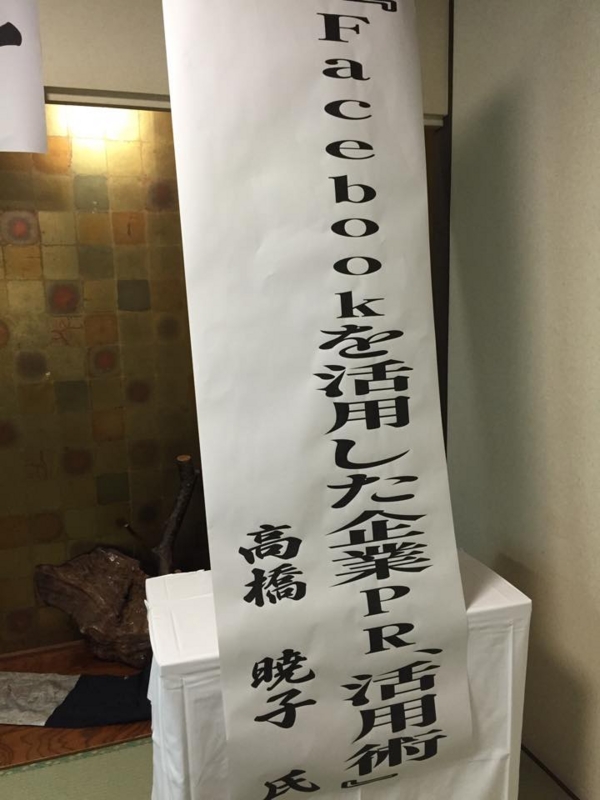 『Facebookを活用した企業PR、活用術』
高橋 暁子 氏